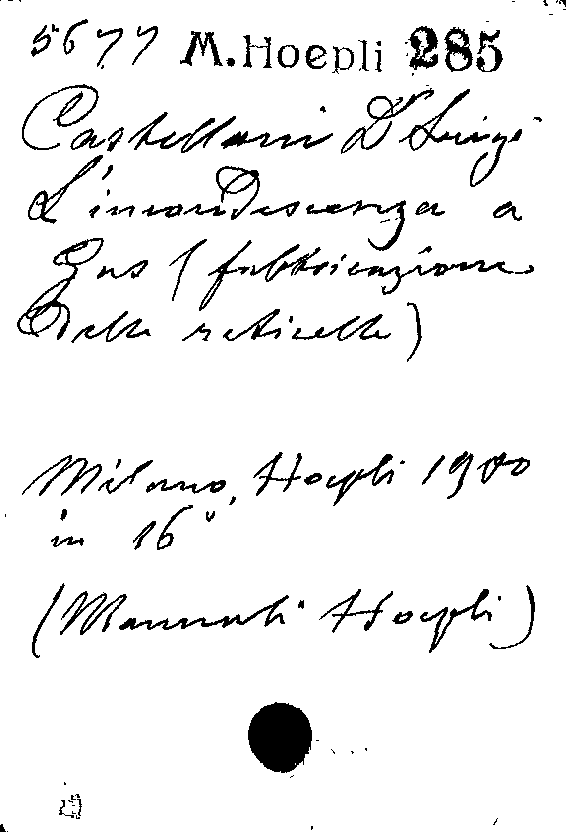 5677 M. Hoepli 285
Castellani Dr Luigi
L'incandescenza a
Gas (fabbricazione
delle reticelle)
Milano, Hoepli 1900
in 16°
(Manuali Hoepli)